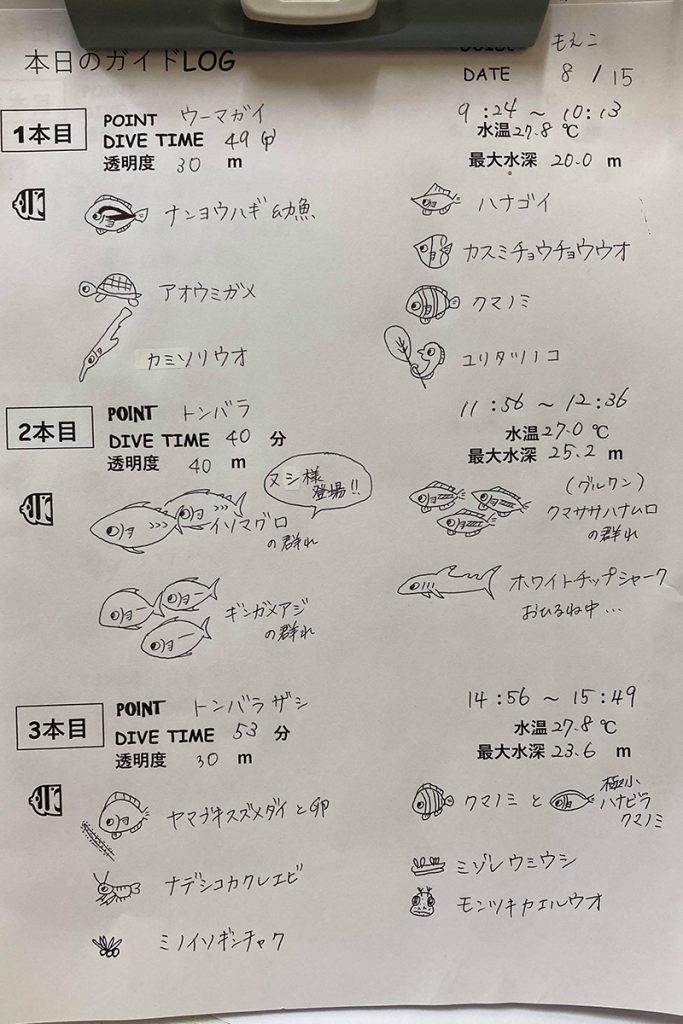 本日のガイドLOG
GUIDE もえこ
DATE 8 / 15
1本目
POINT ウーマガイ
DIVE TIME 49 分
透明度 30 m
9:24 ～ 10:13
水温 27.8 ℃
最大水深 20.0 m
ナンヨウハギ 幼魚
ハナゴイ
カスミチョウチョウウオ
アオウミガメ
クマノミ
カミソリウオ
ユリタツノコ
2本目
POINT トンバラ
DIVE TIME 40 分
透明度 40 m
11:56 ～ 12:36
水温 27.0 ℃
最大水深 25.2 m
ヌシ様
登場!!
イソマグロ
の群れ
(グルクン)
クマササハナムロ
の群れ
ギンガメアジ
の群れ
ホワイトチップシャーク
おひるね中...
3本目
POINT トンバラザシ
DIVE TIME 53 分
透明度 30 m
14:56 ～ 15:49
水温 27.8 ℃
最大水深 23.6 m
ヤマブキスズメダイと卵
クマノミと
極小
ハナビラ
クマノミ
ナデシコカクレエビ
ミゾレウミウシ
ミノイソギンチャク
モンツキカエルウオ